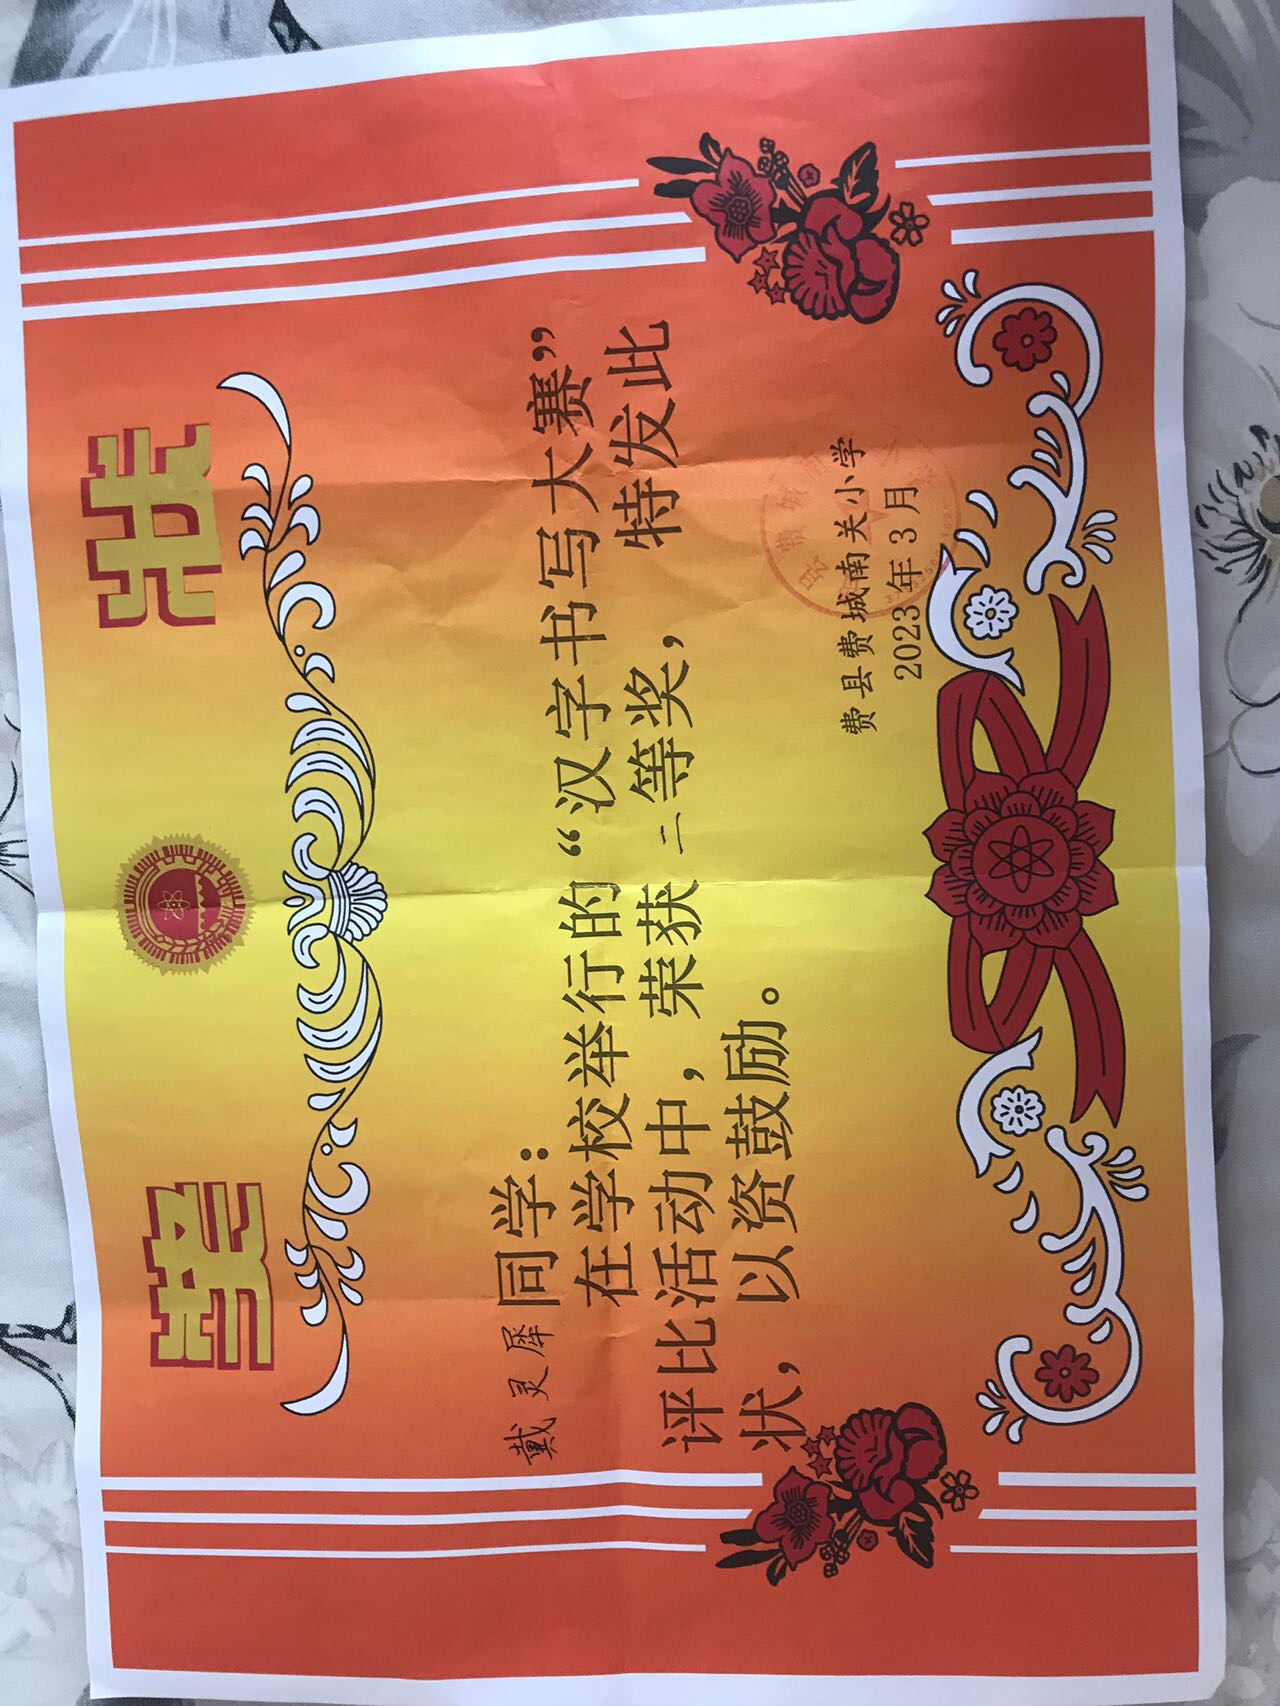 奖状
戴灵犀同学：
在学校举行的“汉字书写大赛”
评比活动中，荣获二等奖，特发此
状，以资鼓励。
费县费城南关小学
2023年3月